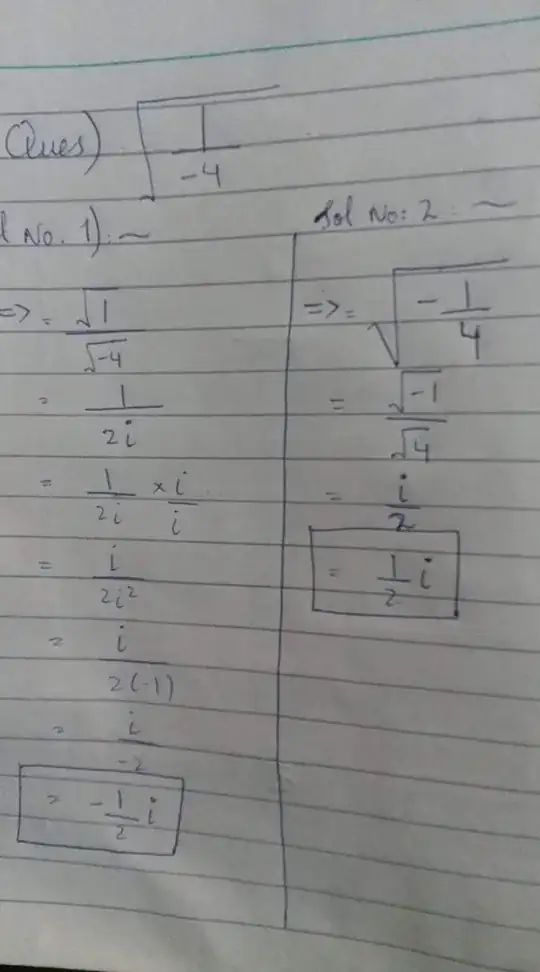 (Ques) √(1/-4)
l No. 1) :~
=> = √1/√-4
= 1/2i
= 1/2i × i/i
= i/2i²
= i/2(-1)
= i/-2
= -1/2 i
Sol No: 2 : ~
=> = √(-1/4)
= √-1/√4
= i/2
= 1/2 i